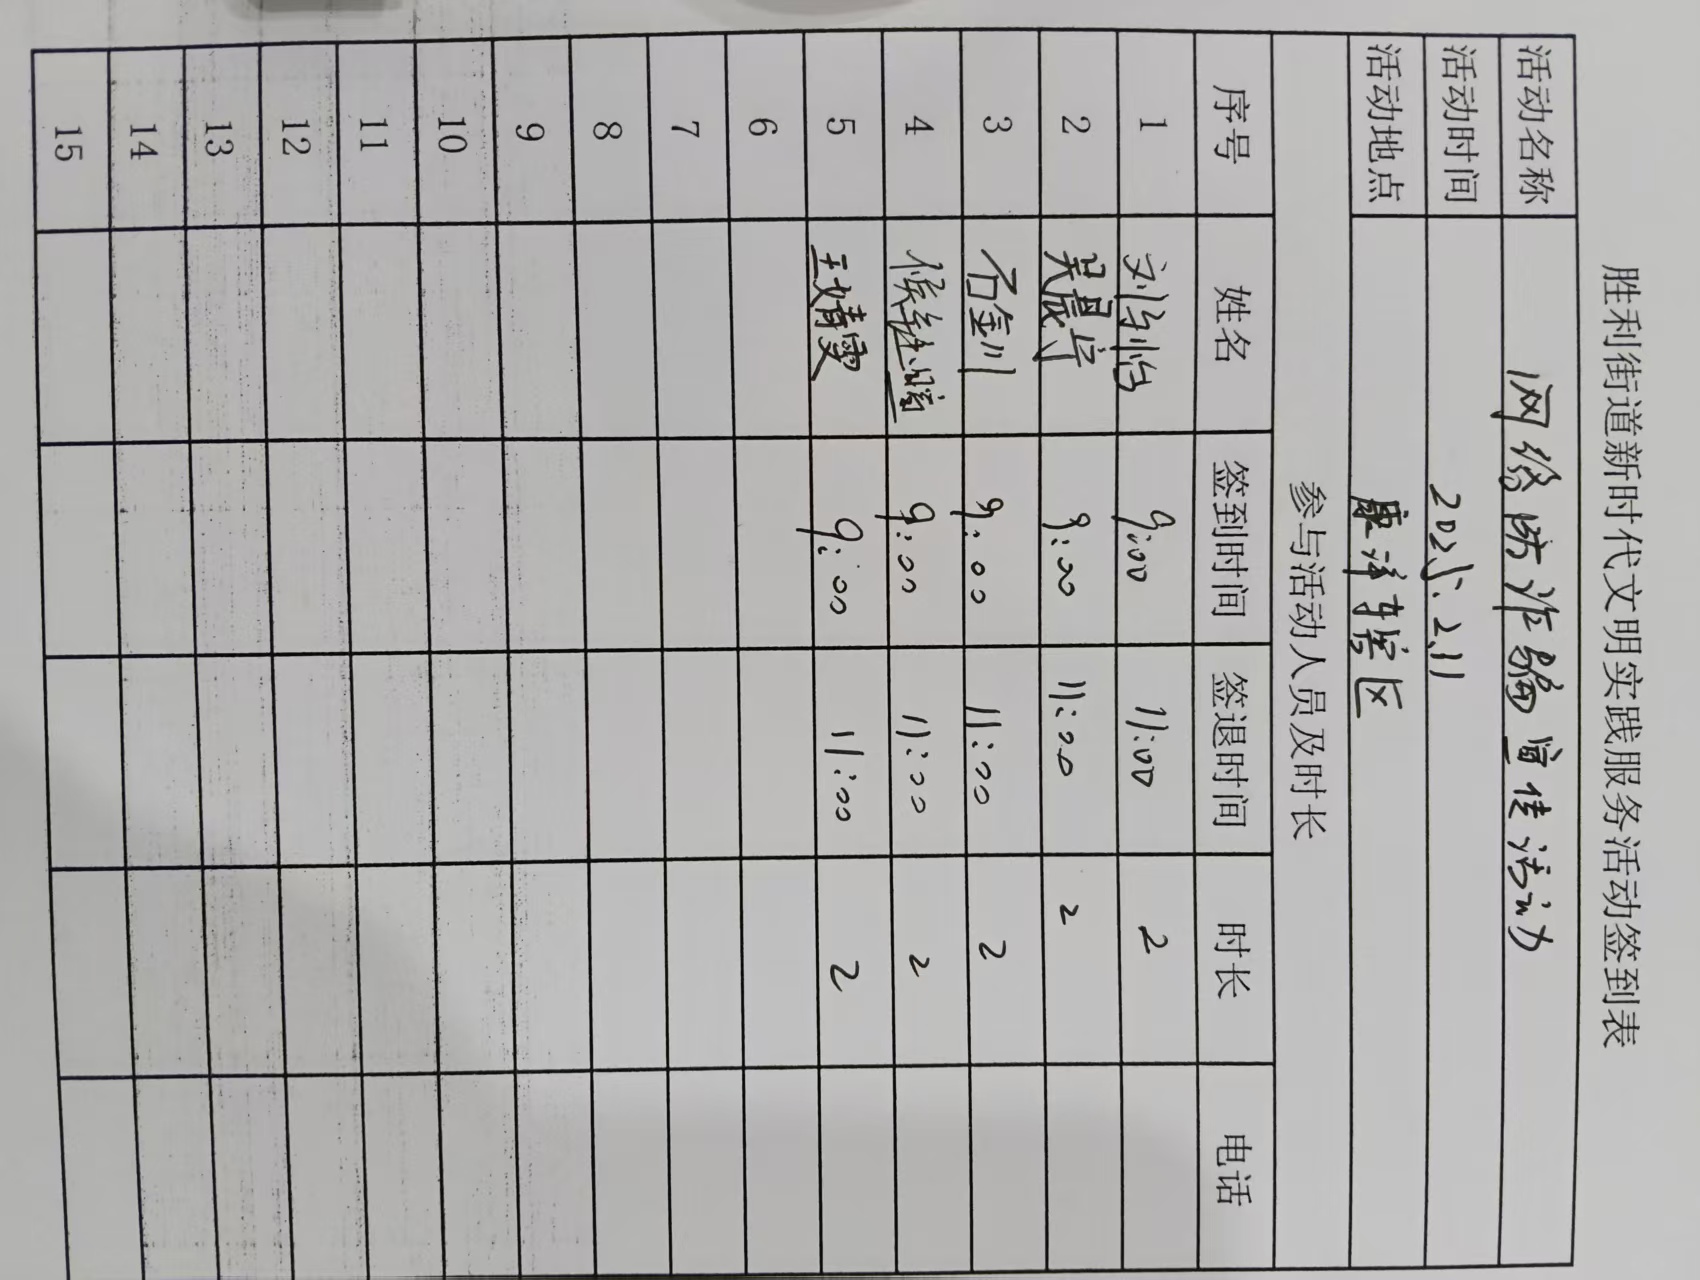 胜利街道新时代文明实践服务活动签到表
活动名称 网络防诈骗宣传活动
活动时间 2025.2.11
活动地点 康洋苹院区
参与活动人员及时长
序号 姓名 签到时间 签退时间 时长 电话
1 刘怡 9:00 11:00 2
2 吴晨宇 9:00 11:00 2
3 石金川 9:00 11:00 2
4 侯 9:00 11:00 2
5 王婧雯 9:00 11:00 2
6
7
8
9
10
11
12
13
14
15